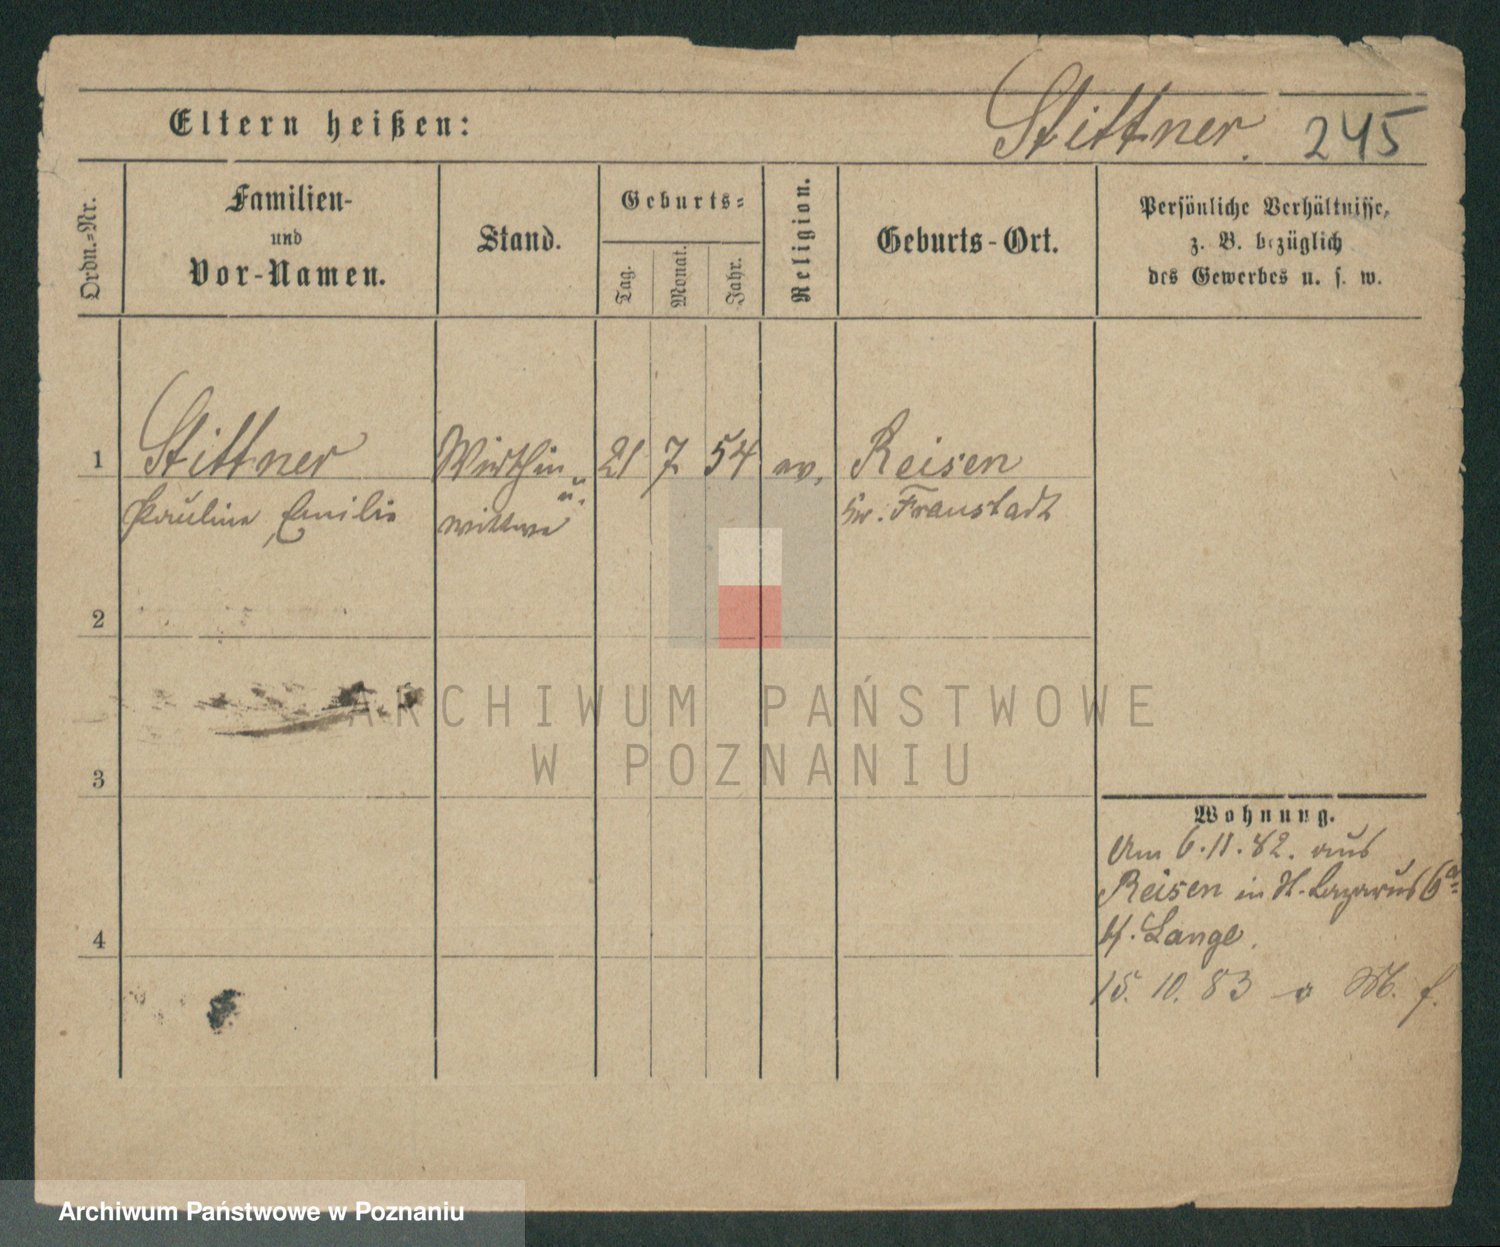 Eltern heißen:
Stittner. 245
Ordn.-Nr.
Familien-
und
Vor-Namen.
Stand.
Geburts-
Tag.
Monat.
Jahr.
Religion.
Geburts-Ort.
Persönliche Verhältnisse,
z. B. bezüglich
des Gewerbes u. s. w.
1 Stittner Wirthin 21 7 54 ev. Reisen
Pauline, Emilie u. wittwe Kr. Fraustadt
2
3
4
Wohnung.
Am 6.11.82. aus
Reisen in St. Lazarus 6a
bf. Lange.
15. 10. 83 M. f.
ARCHIWUM PAŃSTWOWE
W POZNANIU
Archiwum Państwowe w Poznaniu